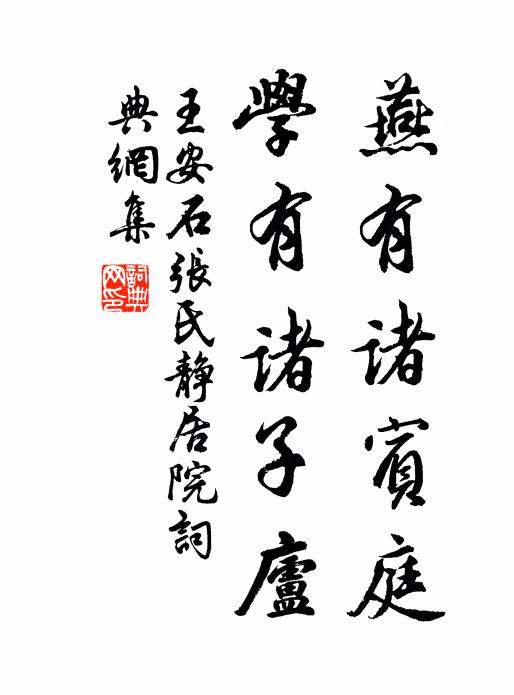 燕有诸賓庭
學有诸子廬
王安石張氏靜居院詞
典網集
詞典網印